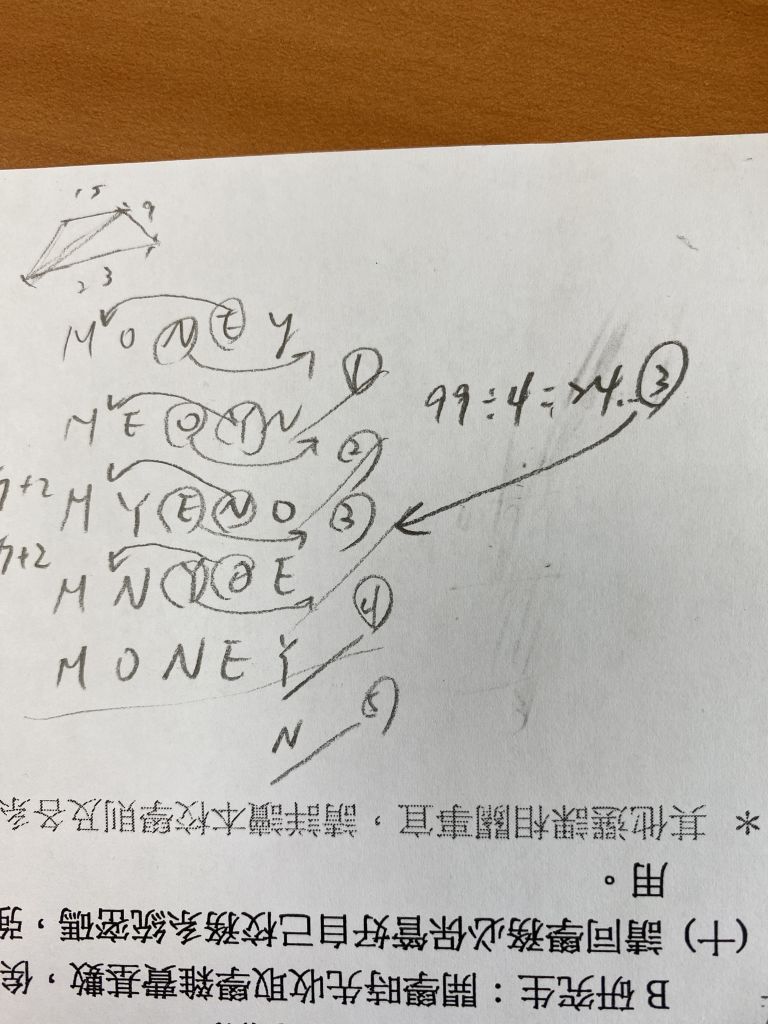 15
9
23
M O N E Y
①
99÷4=24...③
M E O Y N
②
M Y E N O
③
M N Y O E
④
M O N E Y
⑤
N
* 其他選課相關事宜，請詳讀本校學則及各系
用。
(十) 請同學務必保管好自己校務系統密碼，強
B研究生：開學時先收取學雜費基數，俟